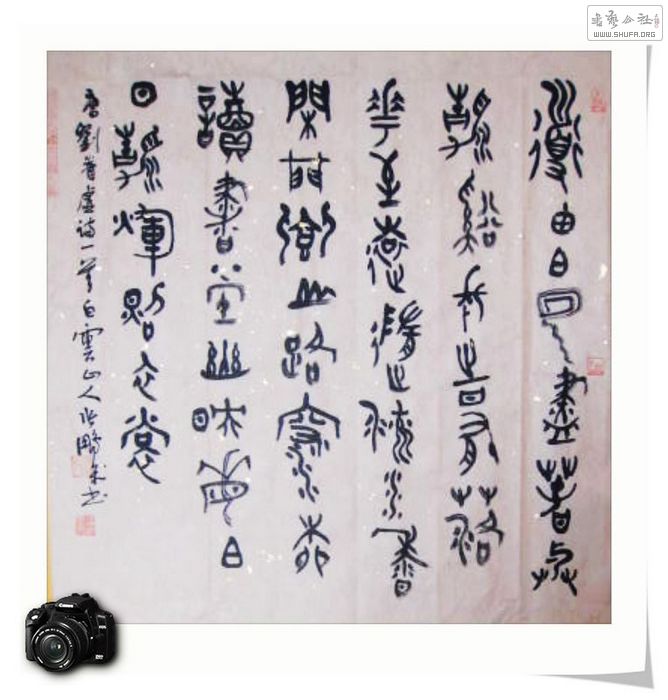 道由白云盡春與
清谿長時有落
花至遠隨流水香
閑門向山路深柳
讀書堂幽映每白
日清輝照衣裳
唐劉昚虛詩一首白雲山人張鵬書
书艺公社
WWW.SHUFA.ORG
Canon